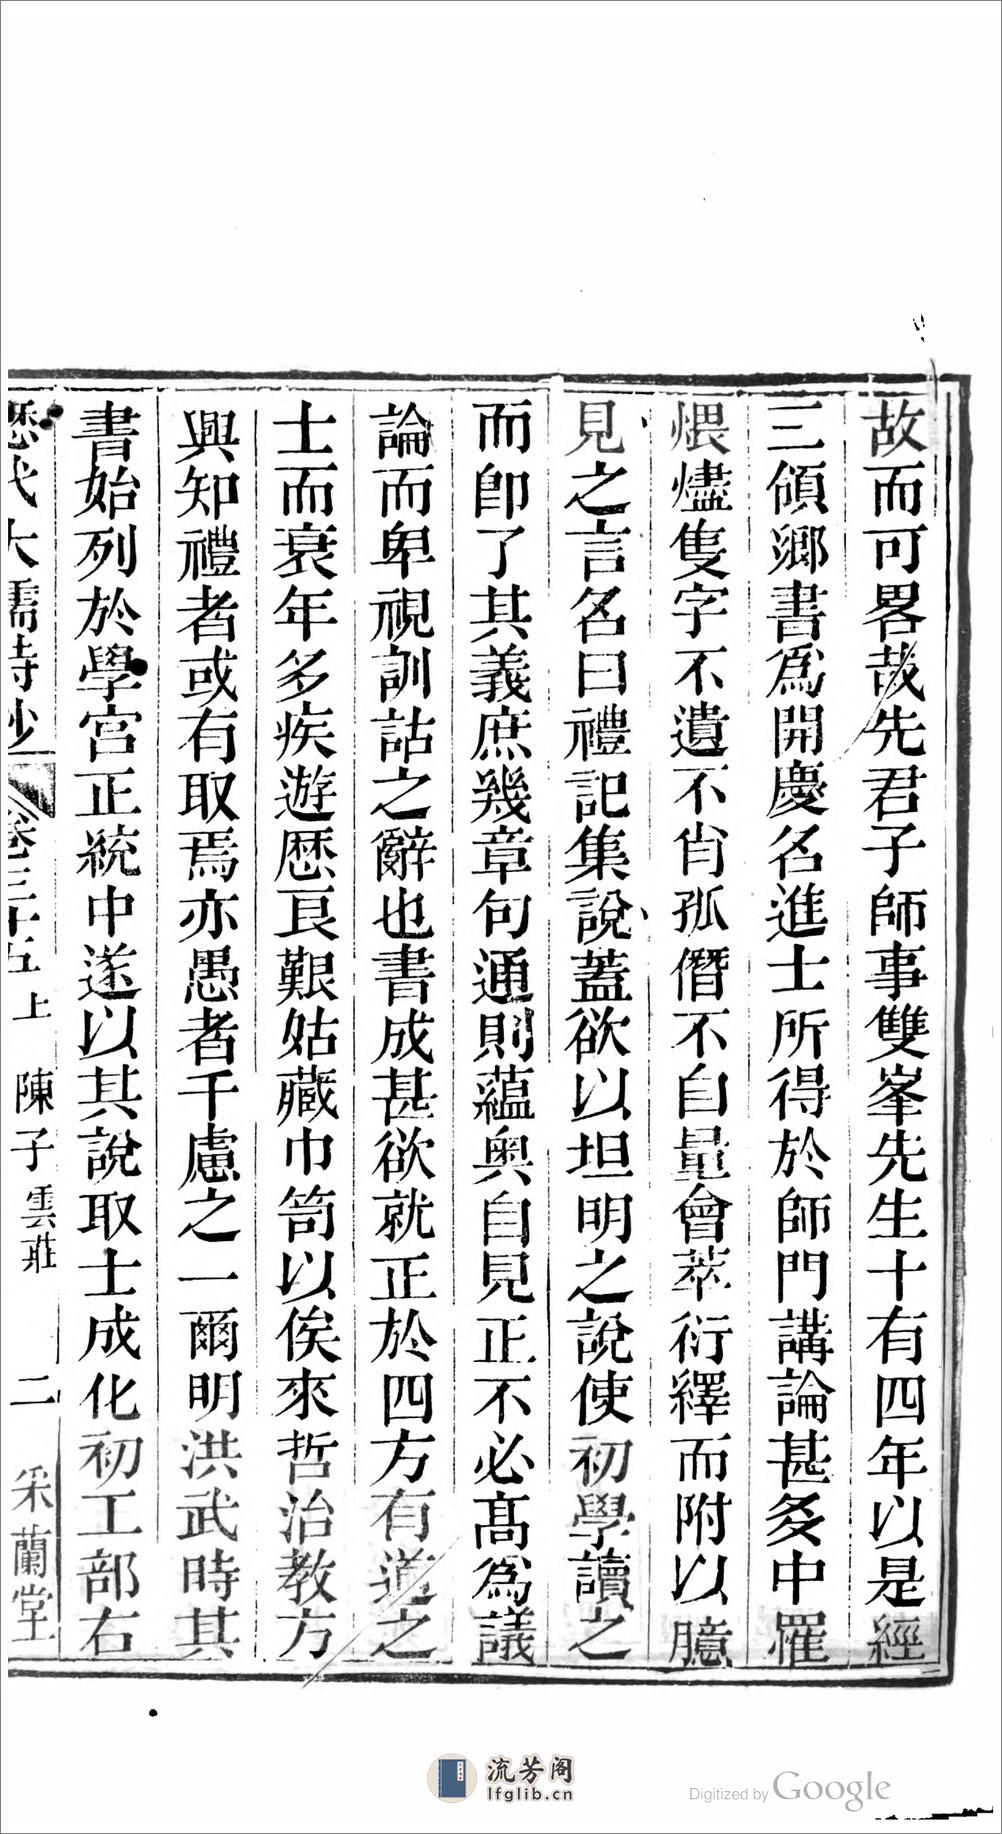 故而可畧哉先君子師事雙峯先生十有四年以是經
三領鄉書爲開慶名進士所得於師門講論甚多中罹
煨燼隻字不遺不肖孤僭不自量會萃衍繹而附以臆
見之言名曰禮記集說蓋欲以坦明之說使初學讀之
而卽了其義庶幾章句通則蘊奥自見正不必髙爲議
論而卑視訓詁之辭也書成甚欲就正於四方有道之
士而衰年多疾遊歴良艱姑藏巾笥以俟來哲治教方
興知禮者或有取焉亦愚者千慮之一爾明洪武時其
書始列於學宮正統中遂以其說取士成化初工部右
歴代大儒詩鈔 卷三十五上 陳子雲莊 二 采蘭堂
流芳阁
lfglib.cn
Digitized by Google